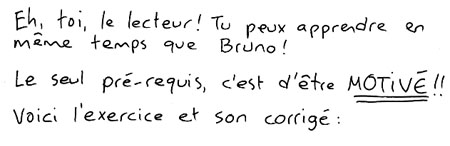 Eh, toi, le lecteur! Tu peux apprendre en
même temps que Bruno!
Le seul pré-requis, c'est d'être MOTIVÉ!!
Voici l'exercice et son corrigé: